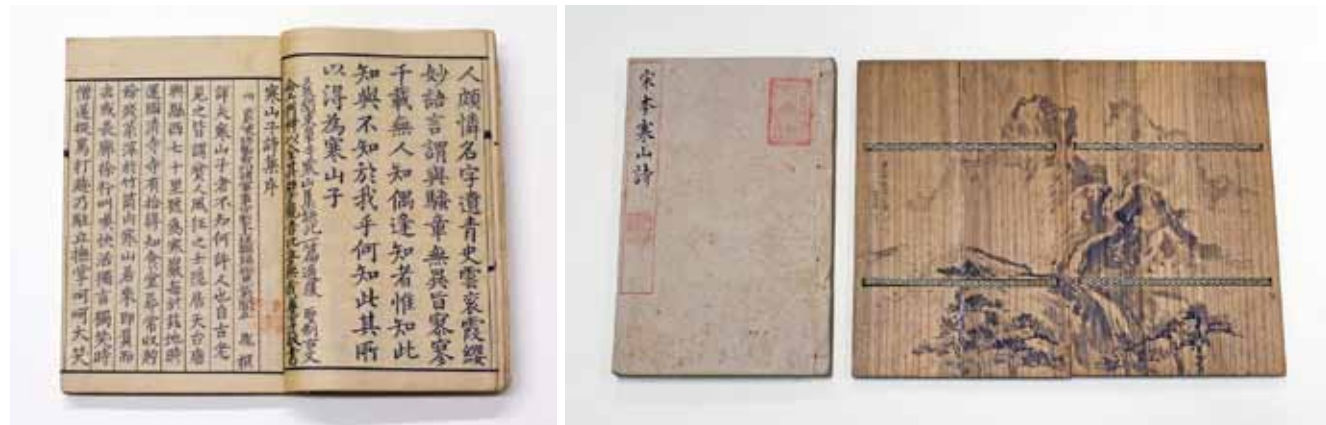 人頗憐名字遺青史雲裳霞纓
妙語言謂與騷章無異旨寥寥
千載無人知偶逢知者惟知此
知與不知於我乎何知此其所
以得為寒山子
寒山子詩集序
撰
詳夫寒山子者不知何許人也自古老
見之皆謂貧人風狂之士隱居天台唐
興縣西七十里號為寒巖每於茲地時
還國清寺寺有拾得知食堂尋常收貯
餘殘菜滓於竹筒內寒山若來即負而
去或長廊徐行叫喚快活獨言獨笑時
僧遂捉罵打趁乃駐立撫掌呵呵大笑
宋本寒山詩